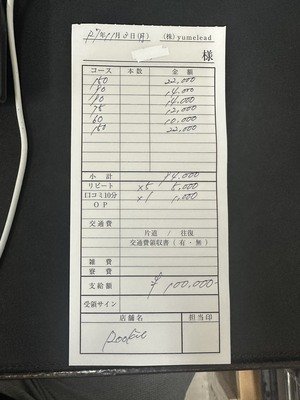 R7年11月3日(月) (株)yumelead
様
コース 本数 金額
150 22,000
90 14,000
90 14,000
75 12,000
60 10,000
150 22,000
小計 94,000
リピート ×5 5,000
口コミ10分 ×1 1,000
OP
交通費
片道 / 往復
交通費領収書 (有・無)
雑費
寮費
支給額 ¥100,000-
受領サイン
店舗名 担当印
Rookie